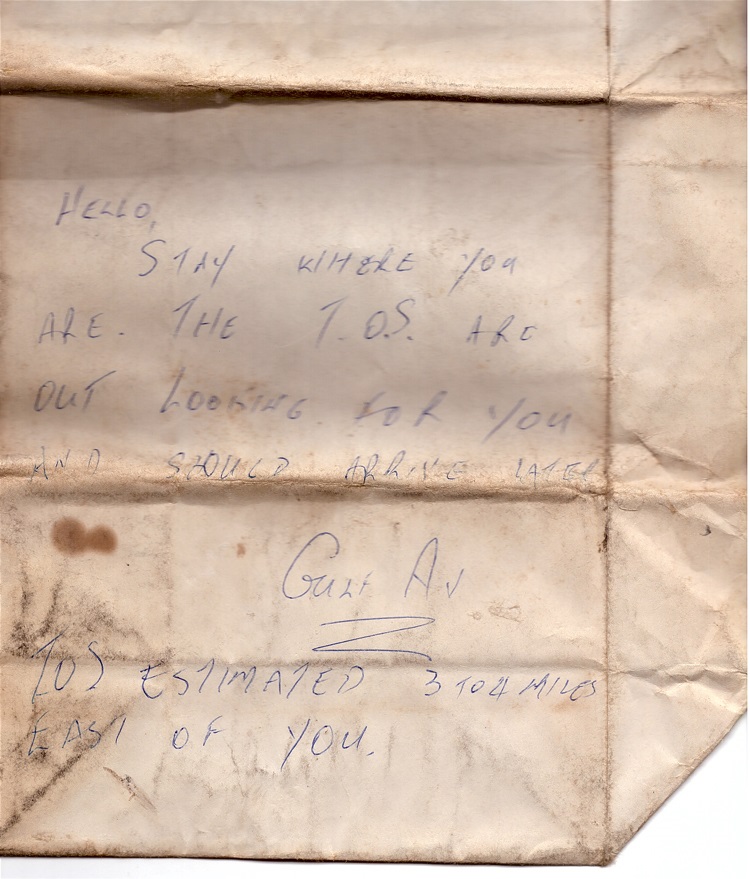 HELLO,
STAY WHERE YOU
ARE. THE T.O.S. ARE
OUT LOOKING FOR YOU
AND SHOULD ARRIVE LATER
GULF AV
TOS ESTIMATED 3 TO 4 MILES
EAST OF YOU.